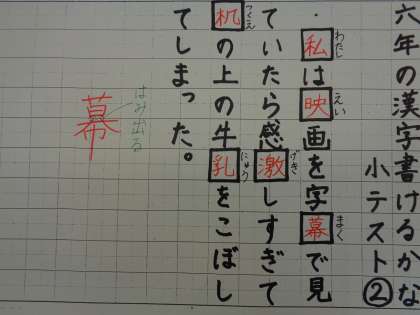 六年の漢字書けるかな
小テスト②
・私は映画を字幕で見
ていたら感激しすぎて
机の上の牛乳をこぼし
てしまった。
わたし
えい
まく
げき
つくえ
にゅう
はみ出る
幕